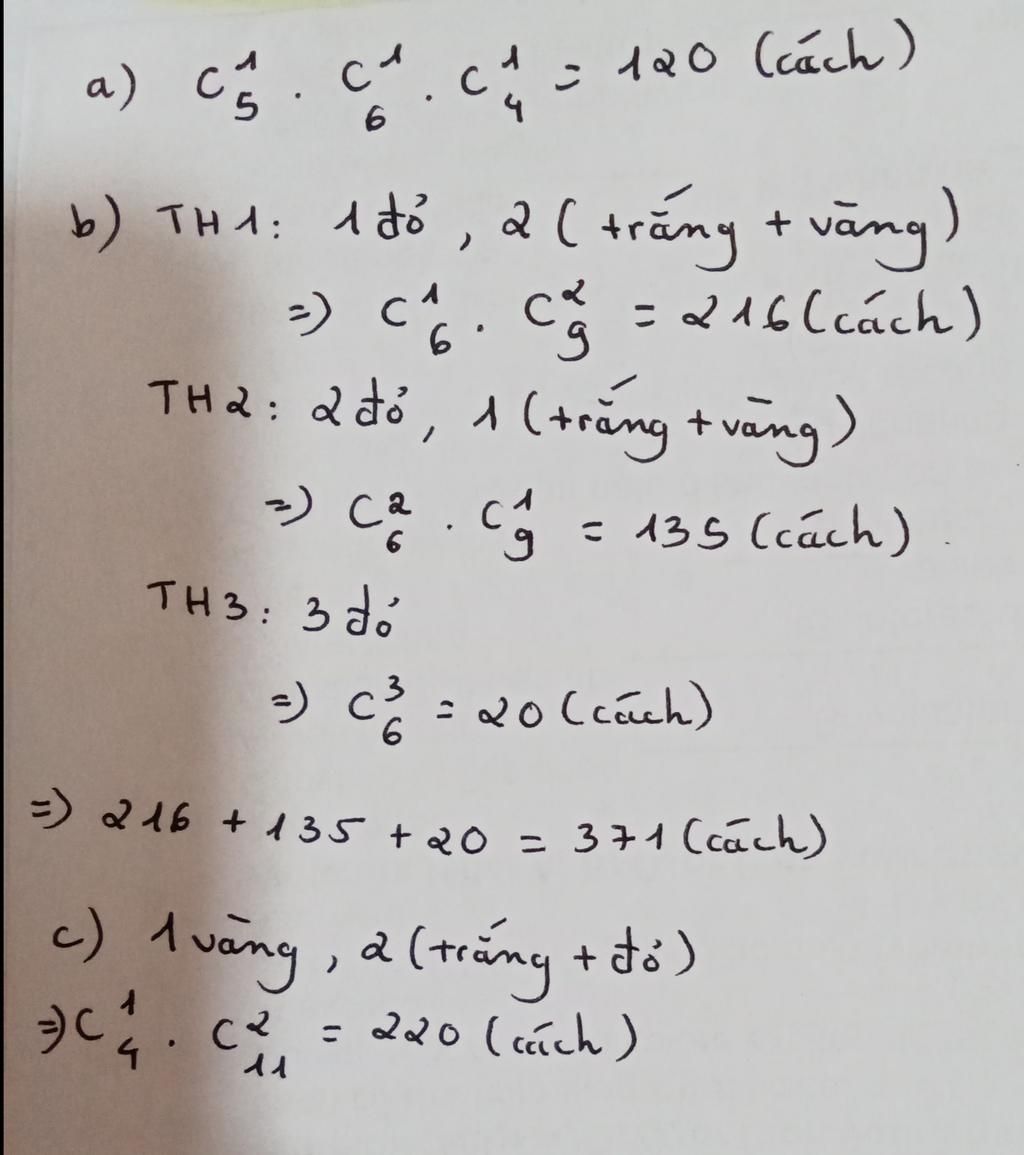 a) C¹₅ . C¹₆ . C¹₄ = 120 (cách)
b) TH1: 1 đỏ, 2 (trắng + vàng)
=> C¹₆ . C²₉ = 216 (cách)
TH2: 2 đỏ, 1 (trắng + vàng)
=> C²₆ . C¹₉ = 135 (cách).
TH3: 3 đỏ
=> C³₆ = 20 (cách)
=> 216 + 135 + 20 = 371 (cách)
c) 1 vàng, 2 (trắng + đỏ)
=> C¹₄ . C²₁₁ = 220 (cách)